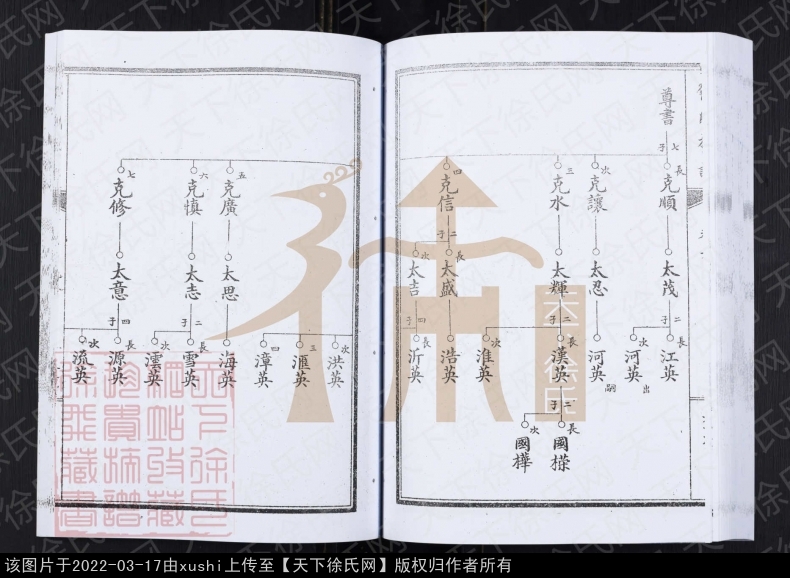 尊書
七子
長 克順
次 克讓
三 克水
四 克信
五 克廣
六 克慎
七 克修
太茂
太忍
太輝
二子
長 太盛
次 太吉
太思
太志
太意
二子
長 江英
次 河英 出
河英 嗣
二子
長 漢英
次 淮英
浩英
四子
長 沂英
次 洪英
三 滙英
四 漳英
海英
二子
長 雪英
次 澐英
四子
長 源英
次 流英
二子
長 國樑
次 國樺
天下徐氏
天下徐氏网
该图片于2022-03-17由xushi上传至【天下徐氏网】版权归作者所有